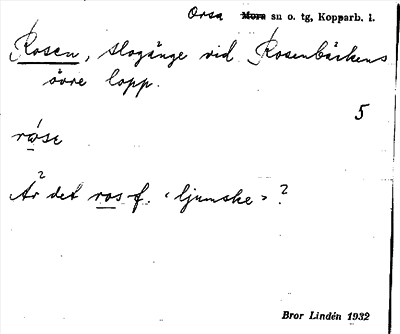 Orsa Mora su o. tg, Kopparb. l.
Rosen, slogänge vid Rosenbäckens
övre lopp.
5
ròse
Är det ros f. "ljumske"?
Bror Lindén 1932